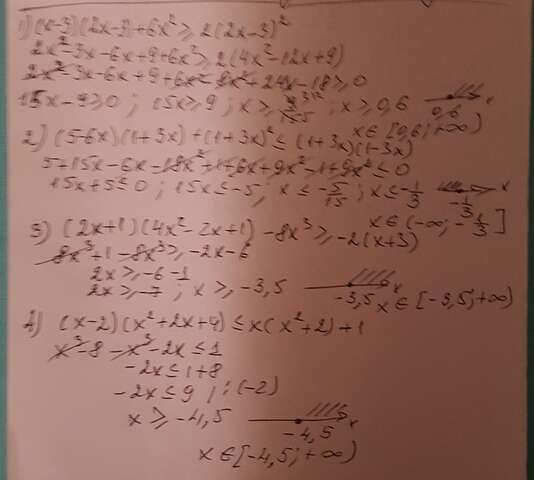 1) (x-3)(2x-3)+6x² ≥ 2(2x-3)²
2x²-3x-6x+9+6x² ≥ 2(4x²-12x+9)
2x²-3x-6x+9+6x²-8x²+24x-18 ≥ 0
15x-9 ≥ 0 ; 15x ≥ 9 ; x ≥ ; x ≥ 0,6
0,6 x
x ∈ [0,6; +∞)
2) (5-6x)(1+3x)+(1+3x)² ≤ (1+3x)(1-3x)
5+15x-6x-18x²+1+6x+9x²-1+9x² ≤ 0
15x+5 ≤ 0 ; 15x ≤ -5 ; x ≤ -5/15 ; x ≤ -1/3
-1/3 x
x ∈ (-∞; -1/3]
3) (2x+1)(4x²-2x+1)-8x³ ≥ -2(x+3)
8x³+1-8x³ ≥ -2x-6
2x ≥ -6-1
2x ≥ -7 ; x ≥ -3,5
-3,5 x
x ∈ [-3,5; +∞)
4) (x-2)(x²+2x+4) ≤ x(x²+2)+1
x³-8-x³-2x ≤ 1
-2x ≤ 1+8
-2x ≤ 9 | :(-2)
x ≥ -4,5
-4,5 x
x ∈ [-4,5; +∞)